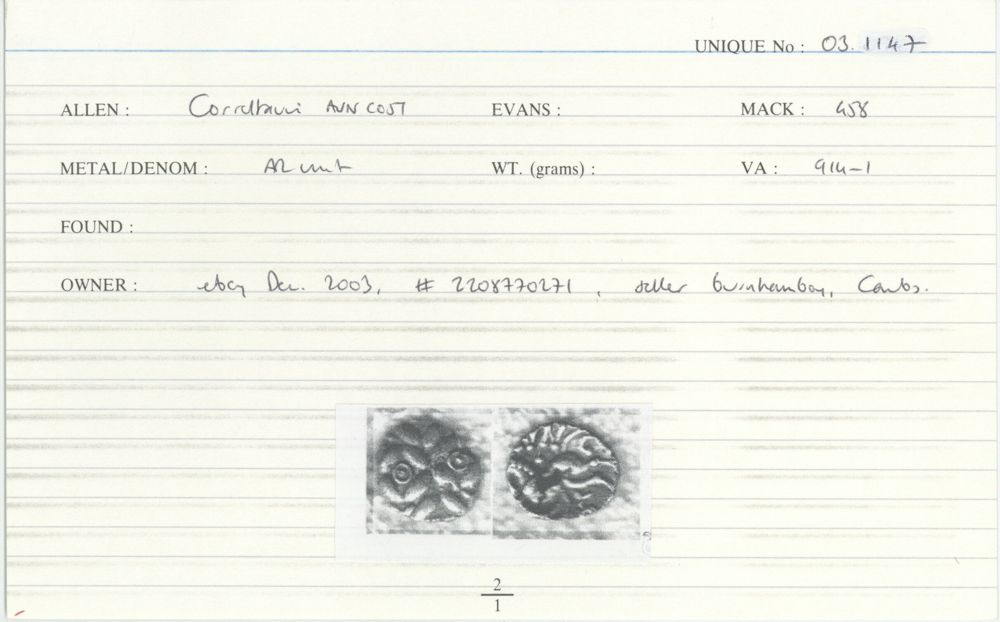 UNIQUE No : 03.1147
ALLEN : Corieltauvi AVN COST EVANS : MACK : 458
METAL/DENOM : AR unit WT. (grams) : VA : 914-1
FOUND :
OWNER : ebay Dec. 2003, # 2208770271, seller burnhamboy, Cambs.
2
1